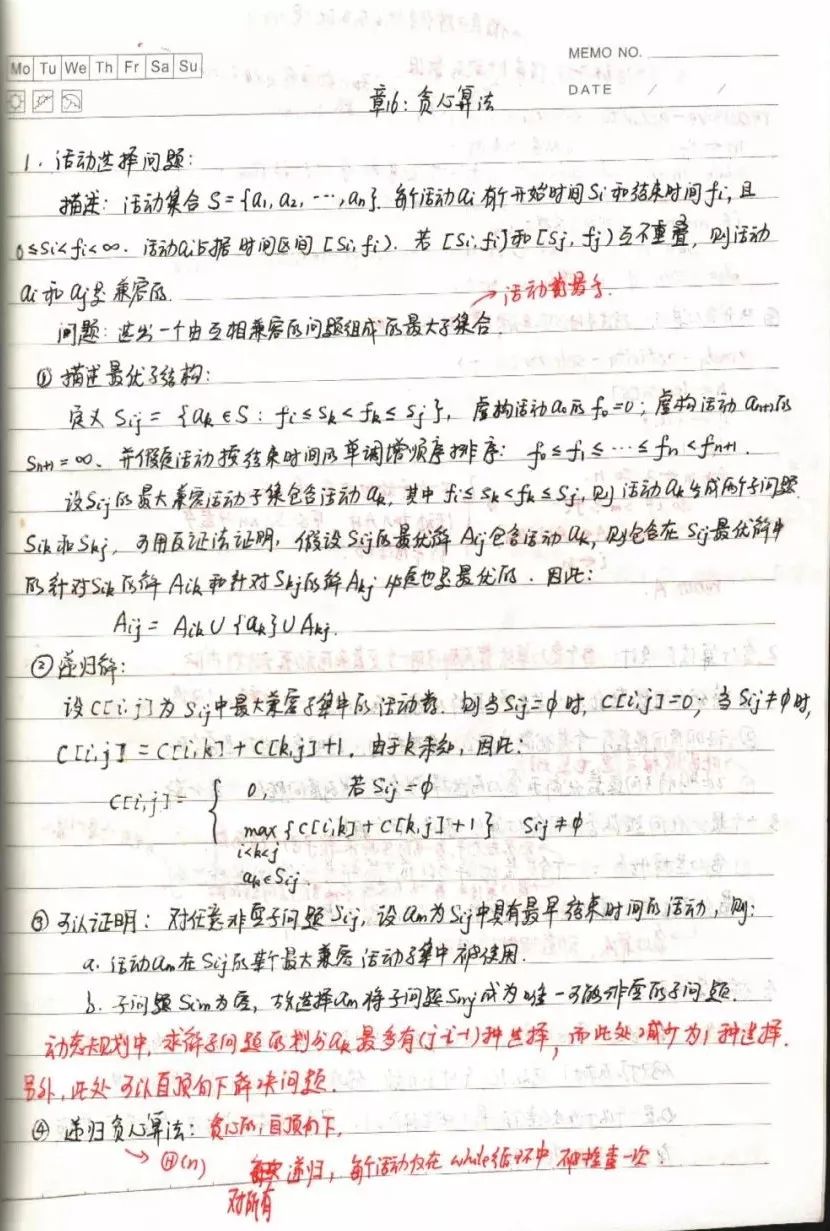 MEMO NO.
Mo Tu We Th Fr Sa Su
DATE / /
章16: 贪心算法
1. 活动选择问题:
描述: 活动集合 S={a1, a2, ···, an}. 每个活动ai有个开始时间Si和结束时间fi, 且
0≤Si<fi<∞. 活动ai占据时间区间 [Si, fi). 若 [Si, fi]和[Sj, fj)互不重叠, 则活动
ai和aj是兼容的.
→活动数最多.
问题: 选出一个由互相兼容的问题组成的最大子集合.
① 描述最优子结构:
定义 Sij = {ak∈S: fi≤Sk<fk≤Sj}, 虚构活动a0的f0=0; 虚构活动an+1的
Sn+1=∞. 并假定活动按结束时间的单调增顺序排序: f0≤f1≤···≤fn<fn+1.
设Sij的最大兼容活动子集包含活动ak, 其中 fi≤sk<fk≤Sj, 则活动ak生成两个子问题
Sik和Skj, 可用反证法证明, 假设Sij的最优解Aij包含活动ak, 则包含在Sij最优解中
的针对Sik的解Aik和针对Skj的解Akj必定也是最优的. 因此:
Aij = Aik∪{ak}∪Akj.
② 递归解:
设C[i,j]为Sij中最大兼容子集中的活动数. 则当Sij=φ时, C[i,j]=0; 当Sij≠φ时,
C[i,j]=C[i,k]+C[k,j]+1. 由于k未知, 因此:
C[i,j]= { 0, 若Sij=φ
max {C[i,k]+C[k,j]+1} Sij≠φ
i<k<j
ak∈Sij
③ 可以证明: 对任意非空子问题Sij, 设am为Sij中具有最早结束时间的活动, 则:
a. 活动am在Sij的某个最大兼容活动子集中被使用.
b. 子问题Sim为空, 故选择am将子问题Smj成为唯一可能非空的子问题.
动态规划中, 求解子问题的划分ak最多有(j-i-1)种选择, 而此处减少为1种选择.
另外, 此处可以自顶向下解决问题.
④ 递归贪心算法: 贪心的, 自顶向下.
→Θ(n) 对所有递归, 每个活动仅在while循环中被检查一次.